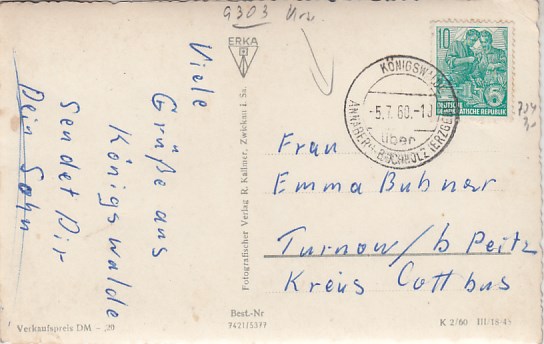 9303
ERKA
Viele
Grüße aus
Königswalde
Sendet Dir
Dein Sohn
Fotografischer Verlag R. Kallmer, Zwickau i. Sa.
10
DEUTSCHE DEMOKRATISCHE REPUBLIK
KÖNIGSWALDE
-5.7.60.-1
über
ANNABERG-BUCHHOLZ (ERZGEB
Frau
Emma Bubner
Turnow/b Peitz
Kreis Cottbus
Verkaufspreis DM -,20
Best.-Nr
7421/5377
K 2/60 III/18-48